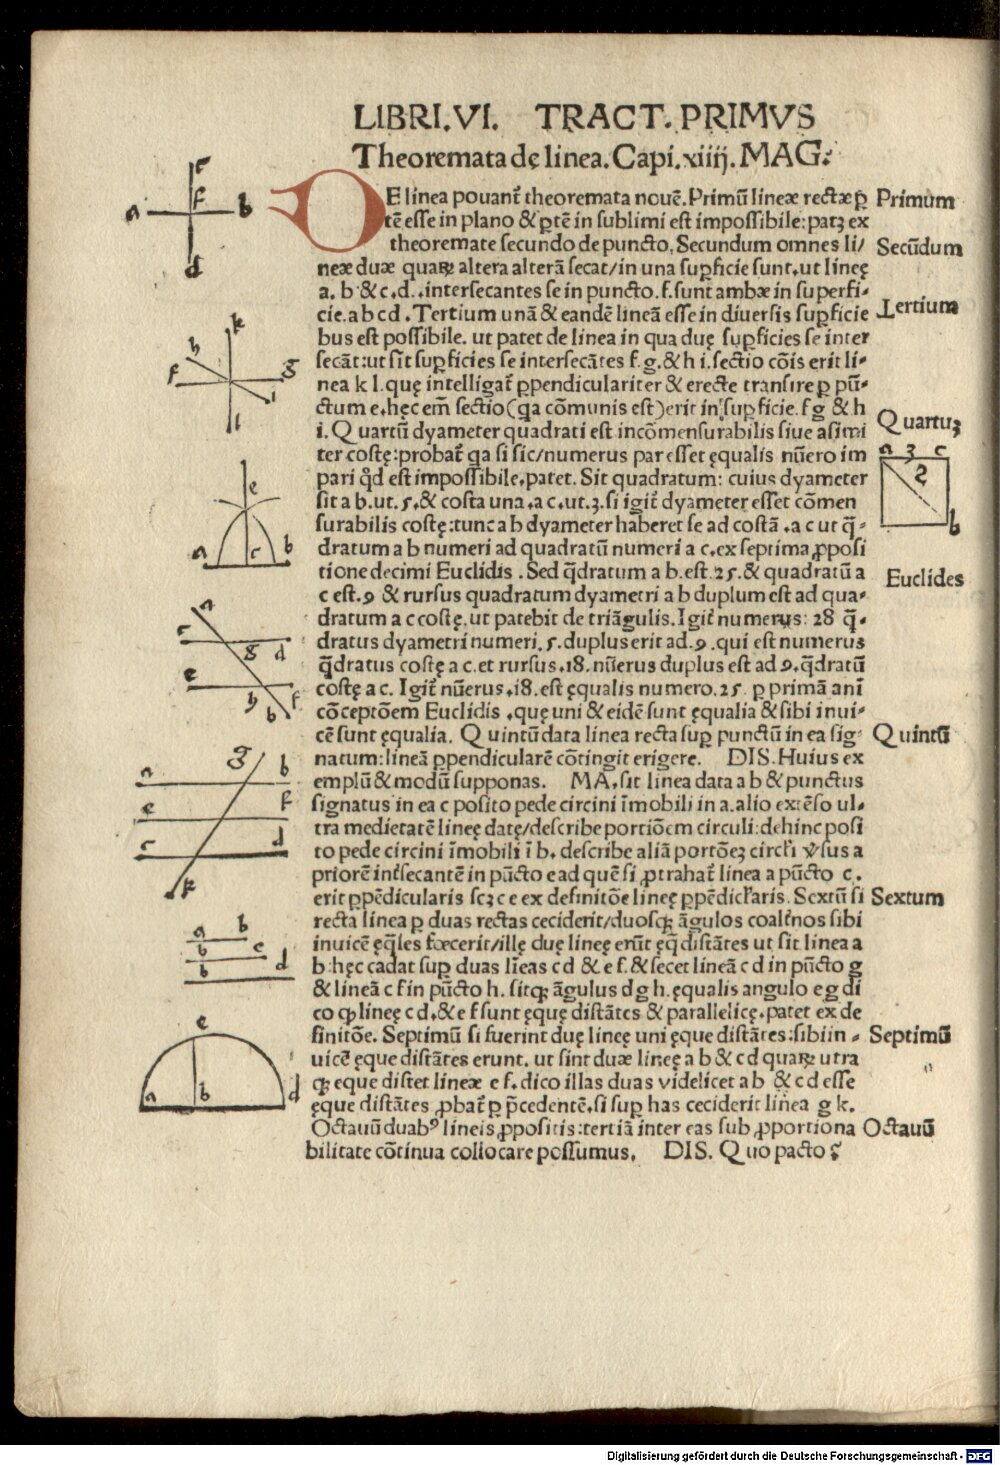 LIBRI.VI. TRACT.PRIMVS
Theoremata dę linea.Capi.xiiij.MAG:
DE linea pouant᷑ theoremata nouē.Primū lineæ rectæ ꝑ Primum
tē esse in plano & ꝑtē in sublimi est impossibile:patꝫ ex
theoremate secundo de puncto. Secundum omnes li/ Secūdum
neæ duæ quaꝝ altera alterā secat/in una suꝑficie sunt.ut lineę
a. b & c.d..intersecantes se in puncto.f.sunt ambæ in superfi-
cie.a b c d. Tertium unā & eandē lineā esse in diuersis suꝑficie Tertium
bus est possibile. ut patet de linea in qua duę suꝑficies se inter
secāt:ut sit suꝑficies se intersecātes f.g.& h i.sectio cōis erit li-
nea k l.quę intelligat᷑ ꝑpendiculariter & erecte transire ꝑ pū-
ctum e.hęc em̄ sectio(qa cōmunis est)erit in suꝑficie.f g & h
i.Quartū dyameter quadrati est incōmensurabilis siue asimi Quartuꝫ
ter costę:probat᷑ qa si sic/numerus par esset ęqualis nūero im
pari qd̄ est impossibile.patet. Sit quadratum: cuius dyameter
sit a b.ut.5.& costa una.a c.ut.3.si igit᷑ dyameter esset cōmen
surabilis costę:tunc a b dyameter haberet se ad costā.a c ut q̄-
dratum a b numeri ad quadratū numeri a c.ex septima ꝓposi
tione decimi Euclidis. Sed q̄dratum a b.est.25.& quadratū a Euclides
c est.9 & rursus quadratum dyametri a b duplum est ad qua-
dratum a c costę.ut patebit de triāgulis.Igit᷑ numerus: 28 q̄-
dratus dyametri numeri.5.duplus erit ad.9.qui est numerus
q̄dratus costę a c.et rursus.18.nūerus duplus est ad 9.q̄dratū
costę a c. Igit᷑ nūerus.18.est ęqualis numero.25. ꝑ primā ani
cōceptōem Euclidis.quę uni & eidē sunt ęqualia & sibi inui-
cē sunt ęqualia. Quintū data linea recta suꝑ punctū in ea sig- Quintū
natum:lineā ꝑpendicularē cōtingit erigere. DIS.Huius ex
emplū & modū supponas. MA.sit linea data a b & punctus
signatus in ea c posito pede circini īmobili in a.alio extēso ul-
tra medietatē lineę datę/describe portiōem circuli:dehinc posi
to pede circini īmobili ī b. describe aliā portōeꝫ circl̄i v̄sus a
priorē int᷑secantē in pūcto e ad quē si ꝓtrahat᷑ linea a pūcto c.
erit ꝑpēdicularis scꝫ c e ex definitōe lineę ꝑpēdicl̄aris. Sextū si Sextum
recta linea ꝑ duas rectas ceciderit/duosqꝫ āgulos coalt᷑nos sibi
inuicē ęq̄les fœcerit/illę duę lineę erūt ęq̄distātes ut sit linea a
b:hęc cadat suꝑ duas līeas c d & e f.& secet lineā c d in pūcto g
& lineā e f in pūcto h. sitqꝫ āgulus d g h.ęqualis angulo e g di
co ꝙ lineę c d.& e f sunt ęquę distātes & parallelicę.patet ex de
finitōe. Septimū si fuerint duę lineę uni ęque distātes:sibi in- Septimū
uicē ęque distātes erunt. ut sint duæ lineę a b & c d quaꝝ utra
qꝫ ęque distet lineæ e f.dico illas duas videlicet a b & c d esse
ęque distātes ꝓbat᷑ ꝑ p̄cedentē.si suꝑ has ceciderit linea g k.
Octauū duabꝰ lineis ꝓpositis:tertiā inter eas sub ꝓportiona Octauū
bilitate cōtinua collocare possumus. DIS. Quo pacto?
Digitalisierung gefördert durch die Deutsche Forschungsgemeinschaft - DFG